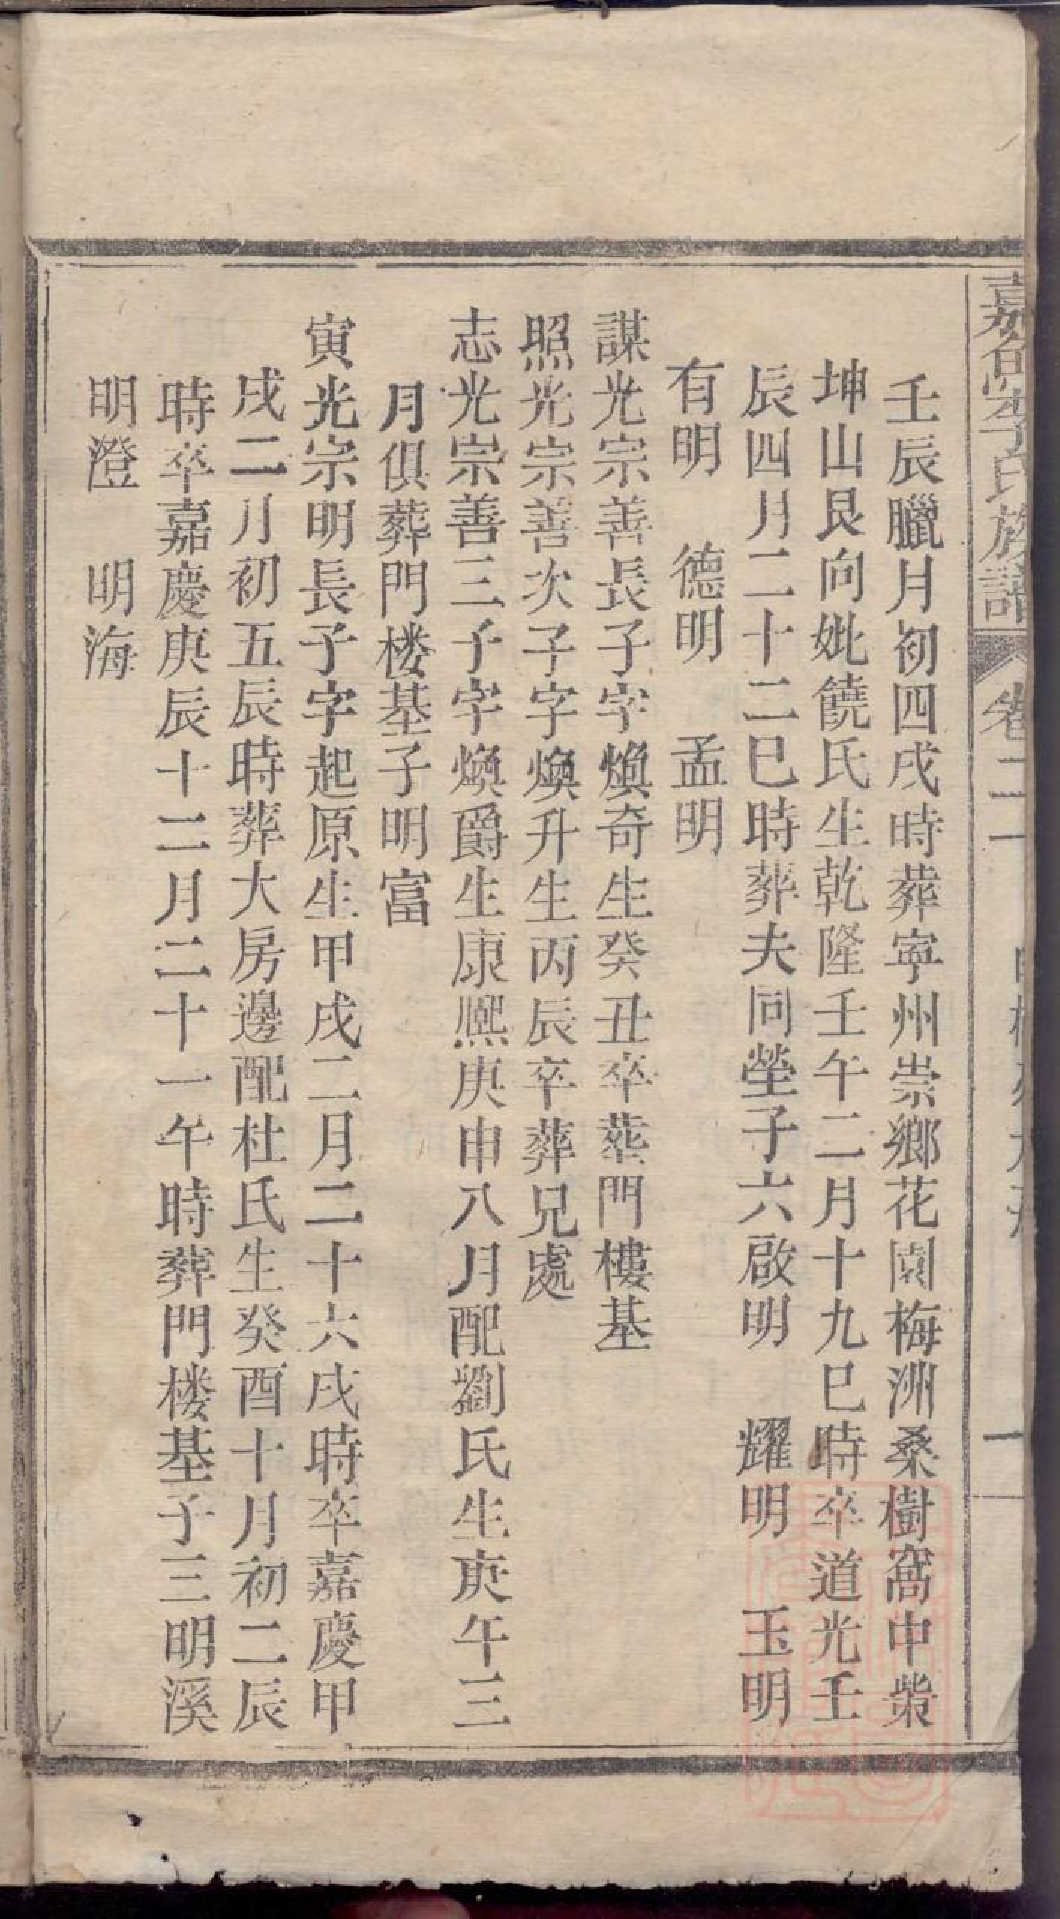 氏族譜
卷二
壬辰臘月初四戌時葬寧州崇鄉花園梅洲桑樹窩中業
坤山艮向妣饒氏生乾隆壬午二月十九巳時卒道光壬
辰四月二十二巳時葬夫同塋子六啟明　耀明　玉明
有明　德明　孟明
謀光宗善長子字煥奇生癸丑卒葬門樓基
照光宗善次子字煥升生丙辰卒葬兄處
志光宗善三子字煥爵生康熙庚申八月配劉氏生庚午三
月俱葬門楼基子明富
寅光宗明長子字起原生甲戌二月二十六戌時卒嘉慶甲
戌二月初五辰時葬大房邊配杜氏生癸酉十月初二辰
時卒嘉慶庚辰十二月二十一午時葬門楼基子三明溪
明澄　明海